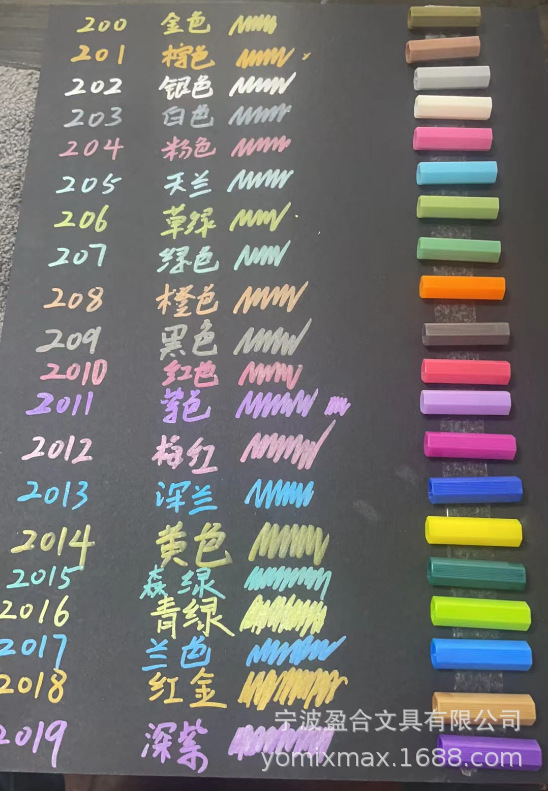 200 金色
201 棕色
202 银色
203 白色
204 粉色
205 天兰
206 草绿
207 绿色
208 橙色
209 黑色
2010 红色
2011 紫色
2012 梅红
2013 深兰
2014 黄色
2015 森绿
2016 青绿
2017 兰色
2018 红金
2019 深紫
宁波盈合文具有限公司
yomixmax.1688.com